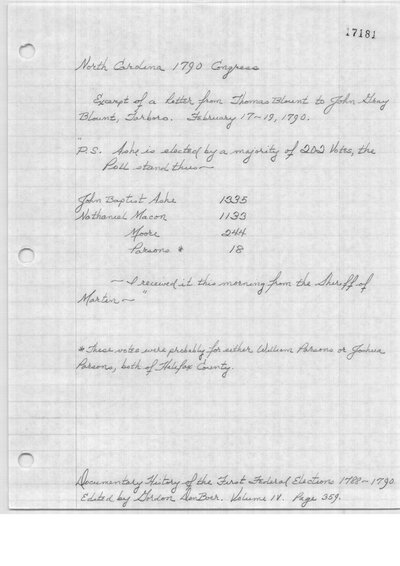 17181
North Carolina 1790 Congress
Excerpt of a letter from Thomas Blount to John Gray
Blount, Tarboro. February 17-19, 1790.
"P.S. Ashe is elected by a majority of 202 Votes, the
Poll stand thus—
John Baptist Ashe 1335
Nathaniel Macon 1133
Moore 244
Parsons * 18
— I received it this morning from the Sheriff of
Marten — "
* These votes were probably for either William Parsons or Joshua
Parsons, both of Halifax County.
Documentary History of the First Federal Elections 1788-1790
Edited by Gordon DenBoer. Volume IV. Page 359.